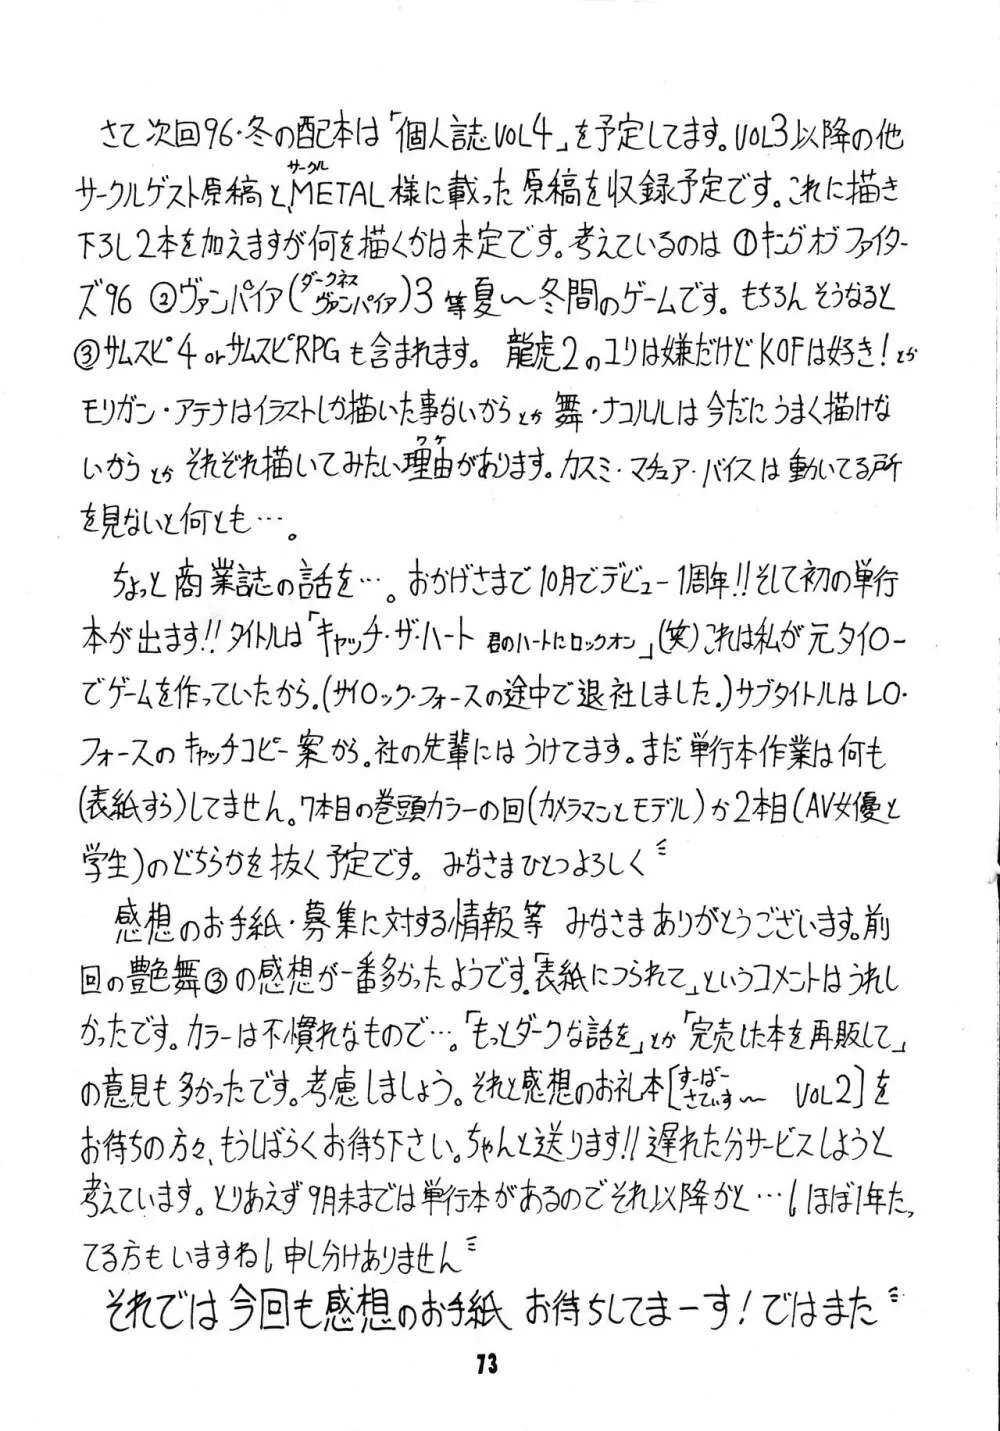 さて次回96・冬の配本は「個人誌VOL4」を予定してます。VOL3以降の他
サークルゲスト原稿と、METAL様に載った原稿を収録予定です。これに描き
サークル
下ろし2本を加えますが何を描くかは未定です。考えているのは ①キングオブファイター
ズ96 ②ヴァンパイア(ダークネス ヴァンパイア)3 等夏〜冬間のゲームです。もちろん そうなると
③サムスピ4 or サムスピRPGも含まれます。 龍虎2のユリは嫌だけどKOFは好き!とか
モリガン・アテナはイラストしか描いた事ないからとか 舞・ナコルルは今だにうまく描けな
いからとか それぞれ描いてみたい理由があります。カスミ・マチュア・バイスは動いてる所
ワケ
を見ないと何とも…。
ちょっと商業誌の話を…。おかげさまで10月でデビュー1周年!!そして初の単行
本が出ます!!タイトルは「キャッチ・ザ・ハート 君のハートにロックオン」(笑)これは私が元タイトー
でゲームを作っていたから。(サイロック・フォースの途中で退社しました。)サブタイトルはLO・
フォースのキャッチコピー案から。社の先輩にはうけてます。まだ単行本作業は何も
(表紙すら)してません。7本目の巻頭カラーの回(カメラマンとモデル)か2本目(AV女優と
学生)のどちらかを抜く予定です。 みなさまひとつよろしく
感想のお手紙・募集に対する情報等 みなさまありがとうございます。前
回の艶色舞③の感想が一番多かったようです。「表紙につられて」というコメントはうれし
かったです。カラーは不慣れなもので…。「もっとダークな話を」とか「完売した本を再販して」
の意見も多かったです。考慮しましょう。それと感想のお礼本[すーぱー さてぃすー VOL2]を
お待ちの方々、もうしばらくお待ち下さい。ちゃんと送ります!!遅れた分サービスしようと
考えています。とりあえず9月末までは単行本があるのでそれ以降かと…(ほぼ1年たっ
てる方もいますね)申し分けありません
それでは今回も感想のお手紙 お待ちしてまーす!ではまた
73